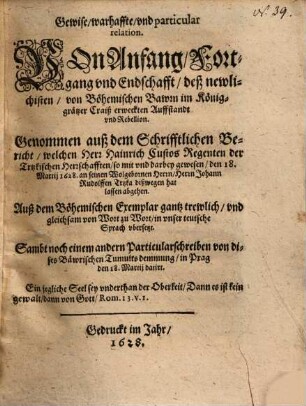 N. 39.
Gewise/warhaffte/vnd particular
relation.
VOn Anfang/Fort-
gang vnd Endschafft/deß newli-
chisten/von Böhemischen Bawrn im König-
grätzer Craiß erweckten Auffstandt
vnd Rebellion.
Genommen auß dem Schrifftlichen Be-
richt/welchen Herr Hainrich Custos Regenten der
Trzkischen Herrschafften/so mit vnd darbey gewesen/den 18.
Martij 1628. an seinen Wolgebornen Herrn/Herrn Johann
Rudolffen Trzka deßwegen hat
lassen abgehen.
Auß dem Böhemischen Exemplar gantz trewlich/vnd
gleichsam von Wort zu Wort/in vnser teutsche
Sprach vbersetzt.
Sambt noch einem andern Particularschreiben von di-
ses Bäwrischen Tumults demmung/in Prag
den 18. Martij datirt.
Ein jegliche Seel sey vnderthan der Oberkeit/Dann es ist kein
gewalt/dann von Gott/Rom. 13. v. 1.
Gedruckt im Jahr/
1628.